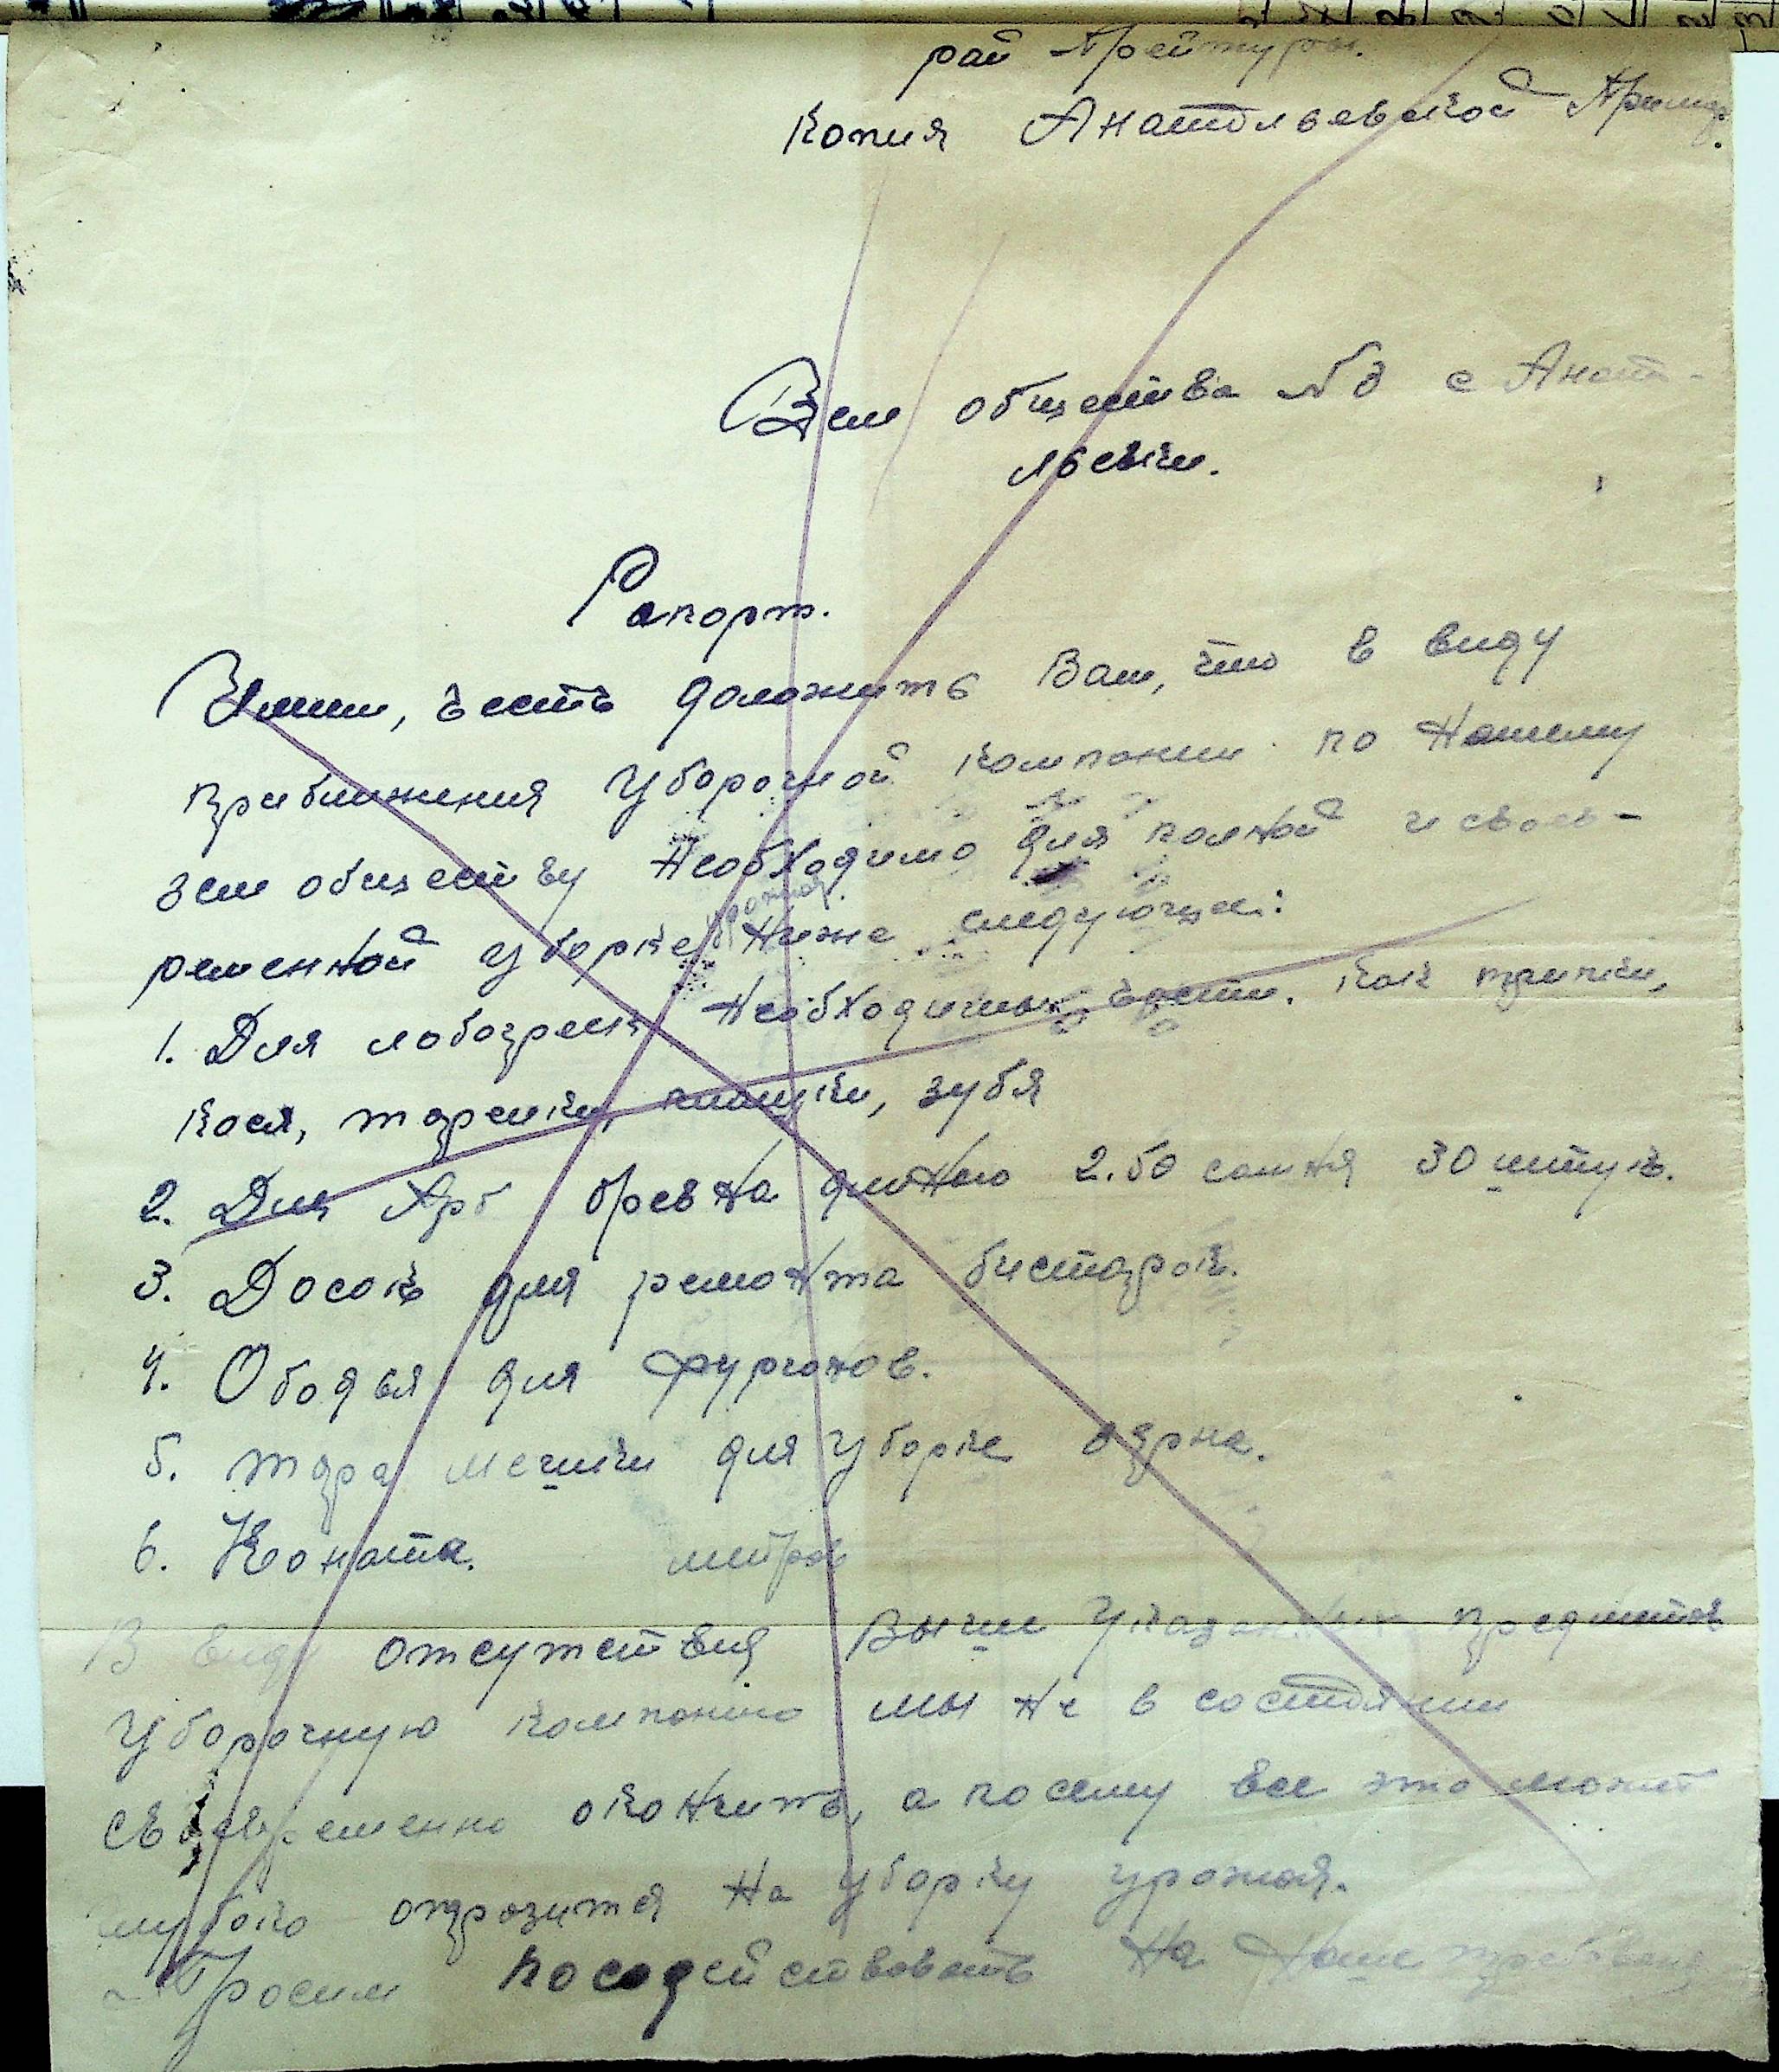 рай Претуры.
Копия Анатольевской Прему.
Зем общества № 8 с Анато-
льевки.
Рапорт.
Имею, честь доложить Вам, что в виду
приближения Уборочной Компании по Нашему
зем обществу Необходимо для полной и своев-
ременной уборке урожая Ниже следующее:
1. Для лобогреек Необходимых части. как трипки,
кося, тарелки, зубя
2. Для Арб бревна длиною 2.50 сантя 30 штук.
3. Досок для ремонта бистарок.
4. Ободья для фургонов.
5. тара мешки для Уборке зярна.
6. Каната. метров
В виду отсутствия Выше Указанных предметов
Уборочную компанию мы не в состоянии
своевременно окончить, а посему все это может
глубоко отразится На Уборку урожая.
Просим посодействовать На Наше требования